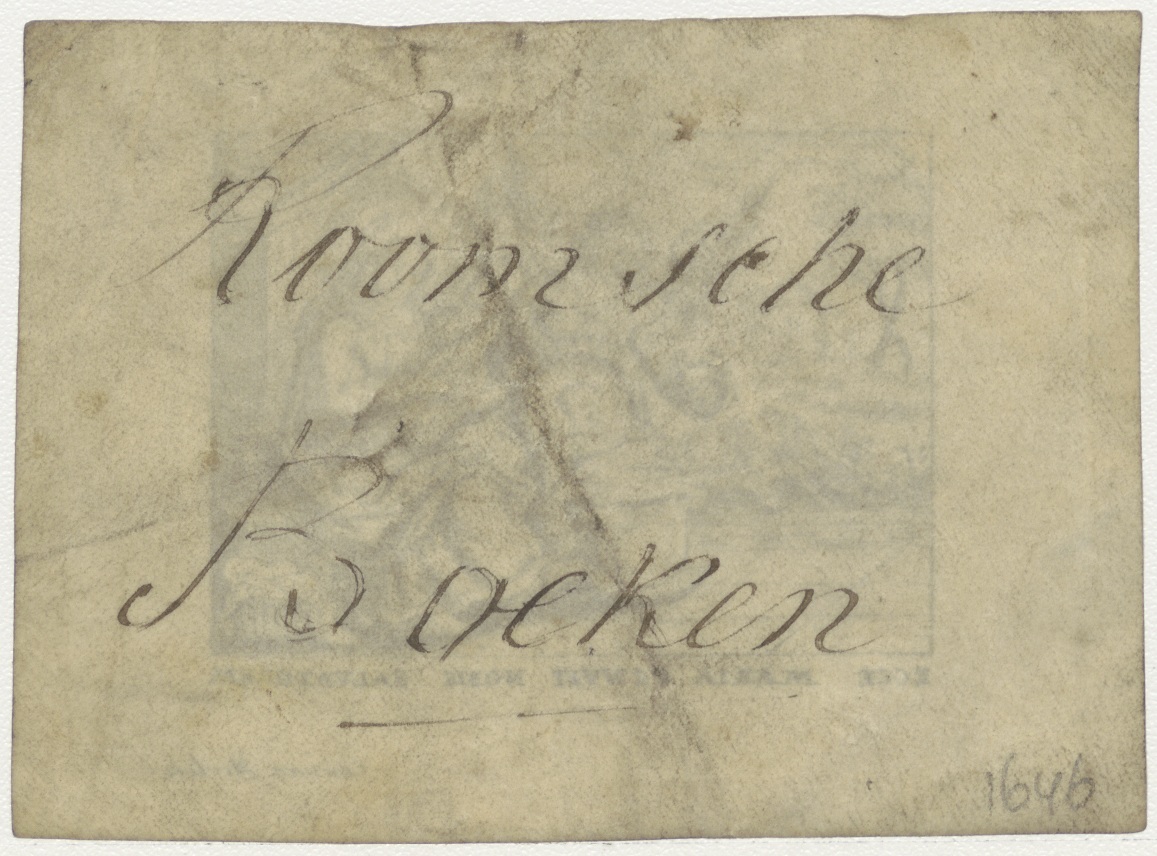 Roomsche
Boeken
1646